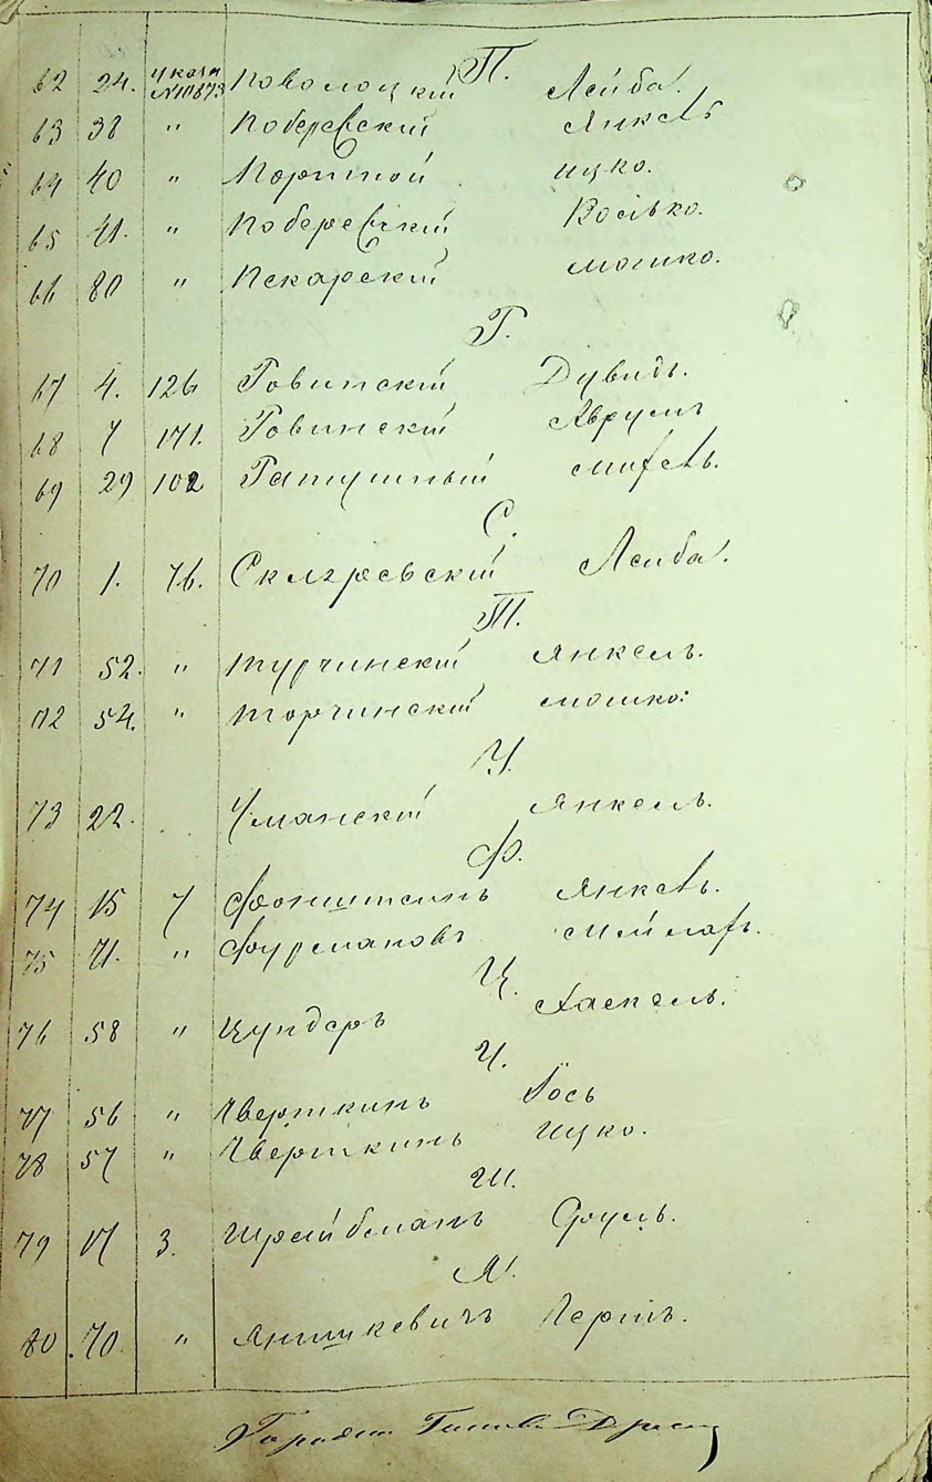 П.
62 24. Указа №10873 Поволоцкій Лейба.
63 38 " Поберевскій Янкель
64 40 " Портной ицко.
65 41. " Поберевскій Иосько.
66 80 " Пекарскій мошко.
Р.
67 4. 126 Ровинскій Дувидъ.
68 7 171. Ровинскій Аврумъ
69 29 102 Ратушный
С.
70 1. 76. Лейба.
Т.
71 52. " Турчинскій Янкель.
72 54. " Торчинскій мошко.
У.
73 22. Уманскій Янкель.
Ф.
74 15 7 Янкель.
75 71. " Фурмановъ
Ц.
76 58 " Цундеръ Хаскель.
Ч.
77 56 " Чверткинъ Іось
78 57 " Чверткинъ Ицко.
Ш.
79 17 3. Шрейбманъ Сруль.
Я.
80 70 " Янишкевичъ Гершъ.